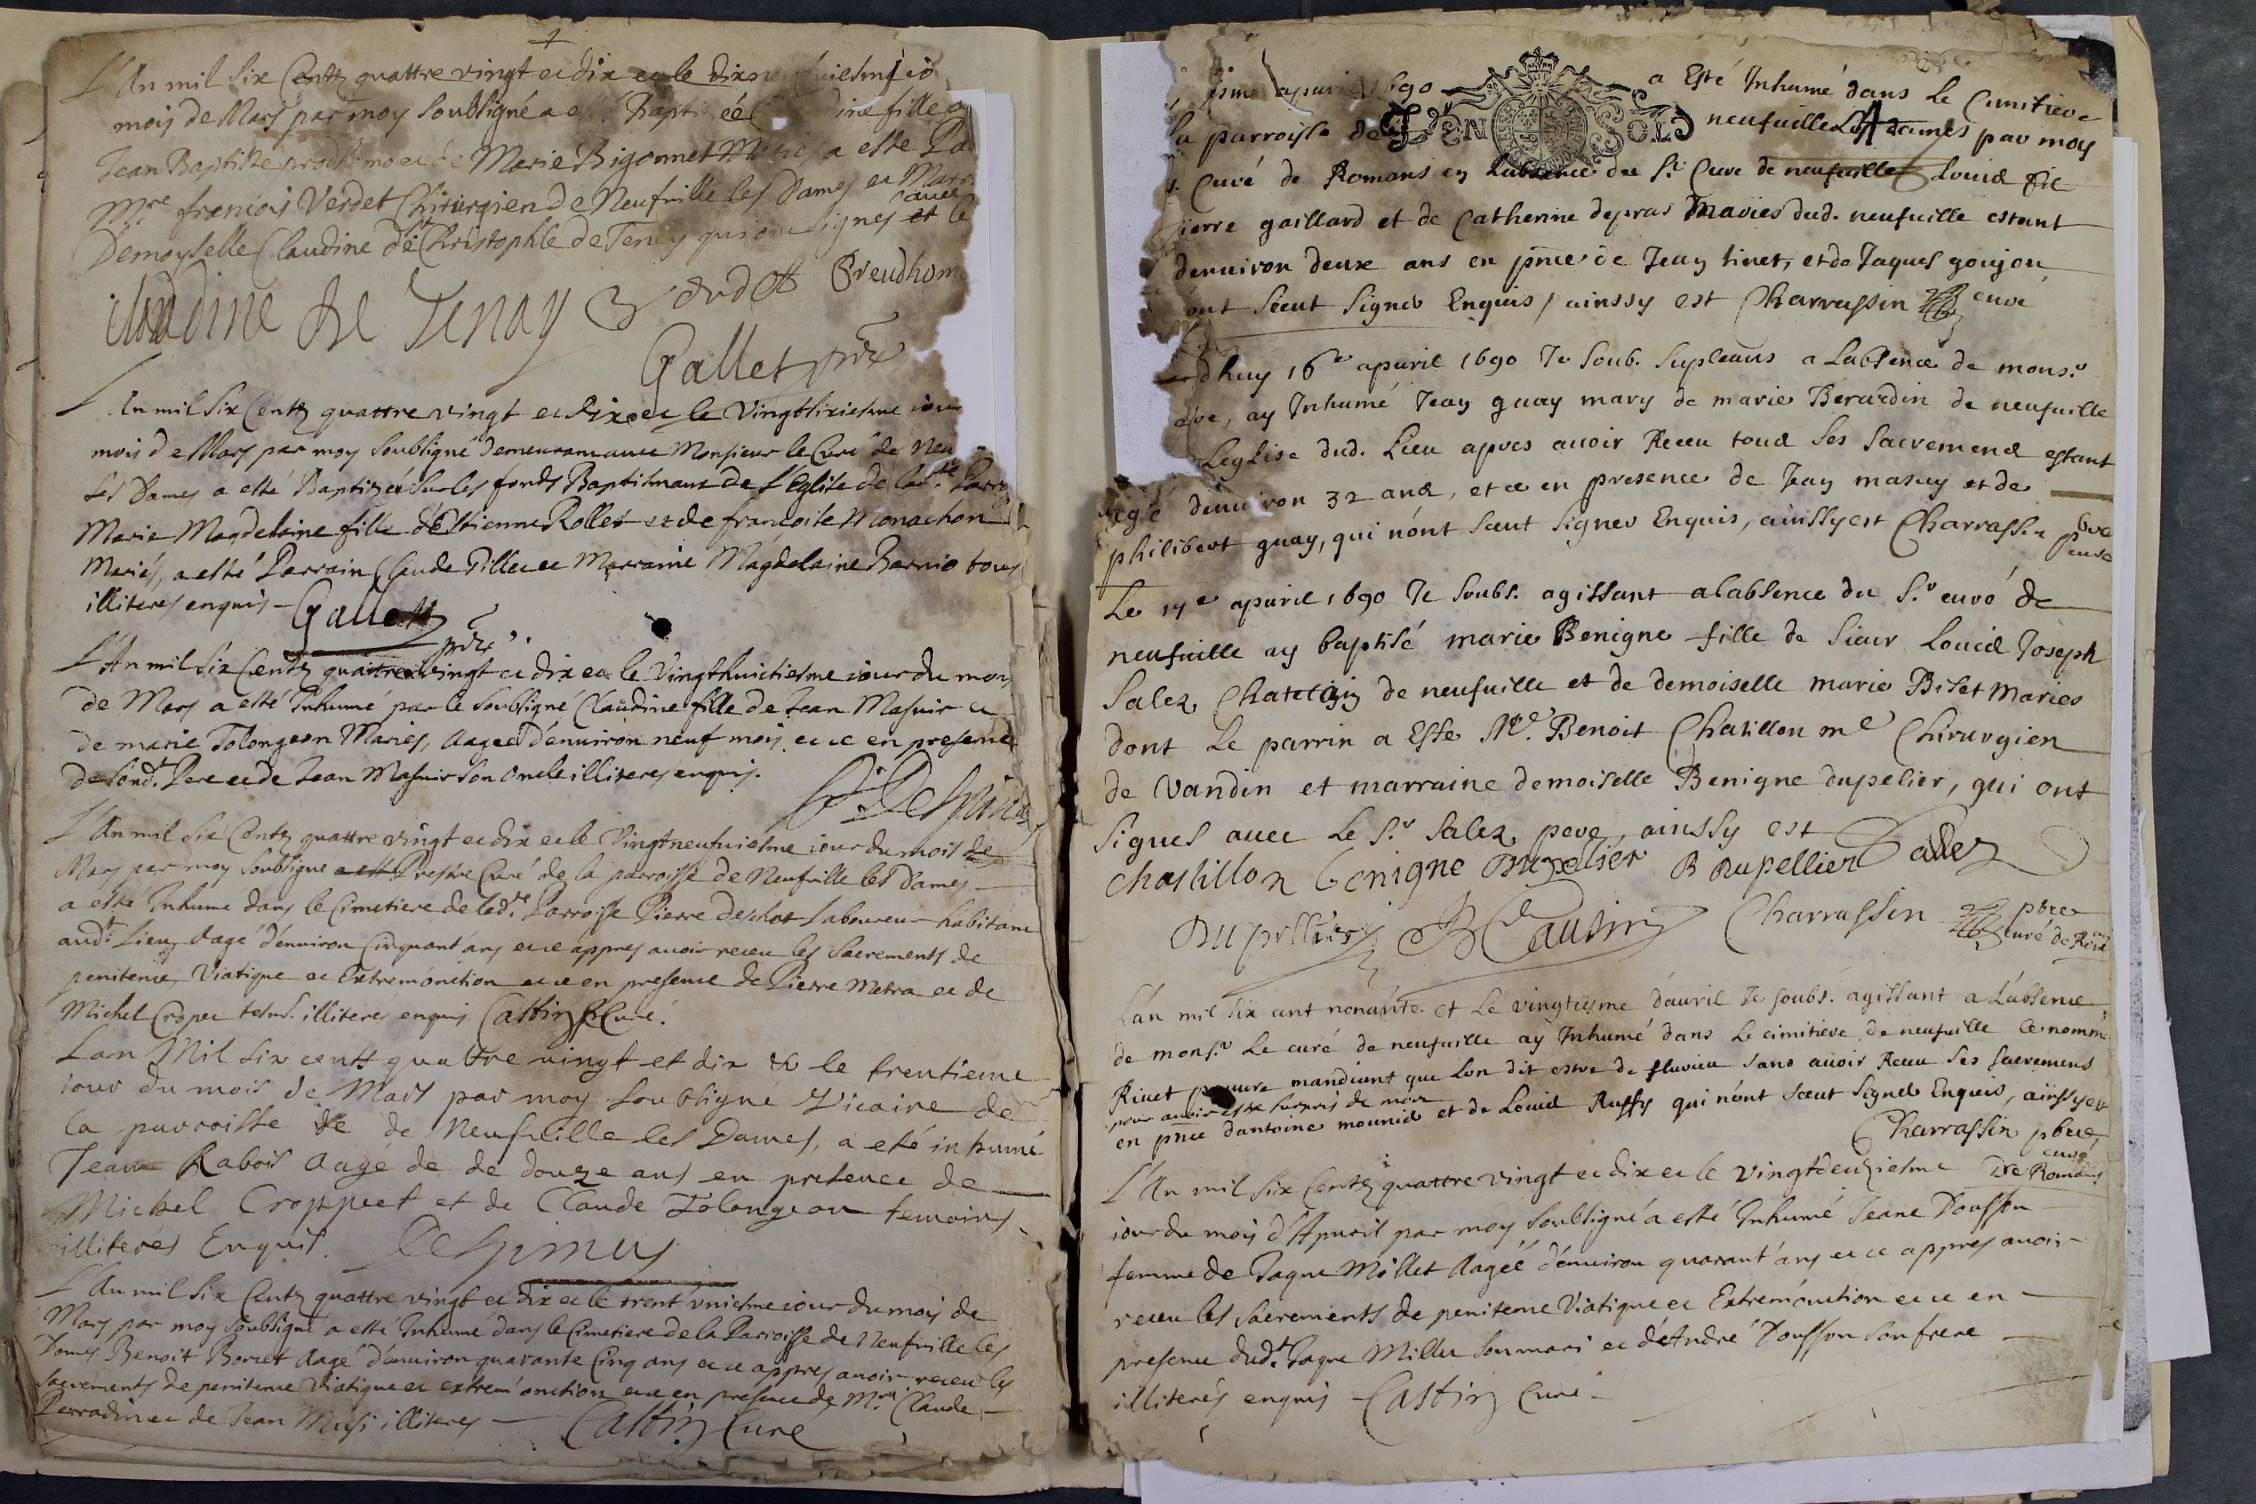 L'An mil six Centz quattre vingt et dix et le dixne
mois de Mars par moy soubsigné a esté Baptizée fille
Jean Baptiste prod'homo et de Marie Bigonnet Mariés a esté Pa
Mre francois Verdet Chirurgien de Neufville les Dames et Marr
Demoyselle Claudine de Christophle de Tenay qui ont signes avec
Claudine de Tenay Verdett Preudhom
Gallet pre
L'An mil six Centz quattre vingt et dix et le Vingtsixiesme iour
mois de Mars par moy soubsigné demeurant avec Monsieur le Curé de Neu
les Dames a esté Baptizée sur les fonds Baptismaux de l'Eglise de lad.te Parro
Marie Magdelaine fille d'Estienne Rollet et de francoise Monachon
Mariés, a esté Parrain Claude Pillet et Marraine Magdelaine Barnio tous
illiteres enquis - Gallet
pre
L'An mil six Centz quattre vingt et dix et le Vingthuictiesme iour du mois
de Mars a esté Inhumé par le soubsigné Claudine fille de Jean Masuir et
de marie Tolongeon Mariés, Aagée d'environ neuf mois et ce en presence
de sond.t Pere et de Jean Masuir son Oncle illiteres enquis.
L'An mil six Centz quattre vingt et dix et le Vingtneufuiesme iour du mois de
Mars par moy soubsigné Prestre Curé de la parroisse de Neufville les Dames
a esté Inhumé dans le Cimetiere de lad.te Parroisse Pierre deschot Laboureur habitant
aud.t Lieu, Aagé d'environ Cinquant'ans et ce appres avoir receu les Sacrements de
penitence, Viatique et Extremónction et ce en presence de Pierre Metra et de
Michel Cropet illiteres enquis Castin Curé.
Lan Mil six centt quattre vingt et dix et le trentieme
iour du mois de Mars par moy soubsigné Vicaire de
la parroisse de de Neufville les Dames, a eté inhumé
Jean Rabois Aagé de de douze ans en presence de
Michel Croppet et de Claude Tolongeon temoins
illiterés Enquis. Despinus
L'An mil six Centz quattre vingt et dix et le trent'vniesme iour du mois de
Mars par moy soubsigné a esté Inhumé dans le Cimetiere de la Parroisse de Neufville les
Dames Benoit Borcet Aagé d'environ quarante Cinq ans et ce appres avoir receu les
Sacrements de penitence Viatique et extrem'onction et ce en presence de Mre Claude
Perradin et de Jean Musi illiteres - Castin Curé
apuril 1690 a Esté Inhumé dans Le Cimitiere
la parroisse de neufuille Les dames par moy
Curé de Romans en Labsence du Sr Cure de neufuille Louis fil
ierre gaillard et de Catherine depras Mariés dud. neufuille estant
denuiron deux ans en pnce de Jean tinet, et de Jaques goujon
ont sceut Signer Enquis, ainssy est Charrassin curé
dhuy 16e apuril 1690 Je Soub. Supleant a Labsence de monsr
ay Inhumé Jean guay mary de marie Berardin de neufuille
Leglise dud. Lieu apres auoir Receu tous Ses Sacremens estant
agé denuiron 32 ans, et ce en presence de Jean masuy et de
philibert guay, qui nont sceut Signer Enquis, ainssy est Charrassin pbre
curé
Le 17e apuril 1690 Je Soubs. agissant alabsence du Sr curé de
neufuille ay baptisé marie Benigne fille de Sieur Louis Joseph
Salez Chatelain de neufuille et de demoiselle marie Biset Maries
dont Le parrin a Este Mre Benoit Chatillon me Chirurgien
de Vandin et marraine demoiselle Benigne dupelier, qui ont
Signes auec Le Sr Salez pere, ainssy est Salez
Chastillon benigne Dupelier B Dupellier
Dupellier Charrassin pbre
curé de Ro
Lan mil six cent nonante et Le vingtiesme d'auril Je soubs. agissant a Labsence
de monsr Le curé de neufuille ay Inhumé dans Le cimitiere de neufuille Le nommé
Riuet pauure mandiant que Lon dit estre de fluvieu Sans auoir Receu Ses Sacremens
pour auoir esté Surpris de mort
en pnce dantoine mounié et de Louis Ruffy qui nont sceut Signer Enquis, ainssy est
Charrassin pbre,
curé
De Romans
L'An mil six Centz quattre vingt et dix et le vingtdeuziesme
iour du mois d'Apuril par moy soubsigné a esté Inhumé Jeane Dousson
femme de Jaque Millet Aagéé d'environ quarant'ans et ce appres avoir
receu les Sacrements de penitence Viatique et Extremónction et ce en
presence dud.t Jaque Millet son mari et d'André Dousson son frere
illiterés enquis - Castin Curé